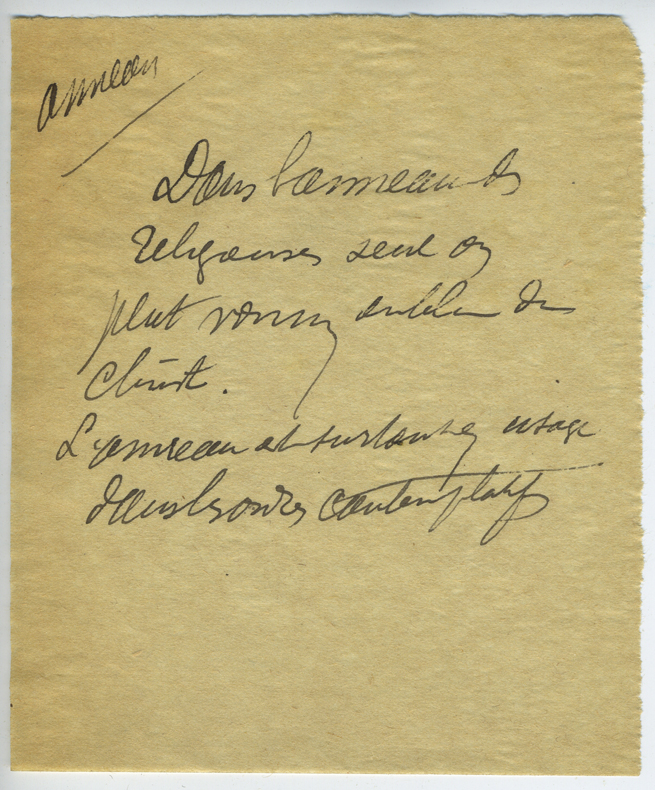 anneau
Dans l'anneau des
religieuses seul on
peut voir emblème du
Christ.
L'anneau est surtout en usage
dans les ordres contemplatifs